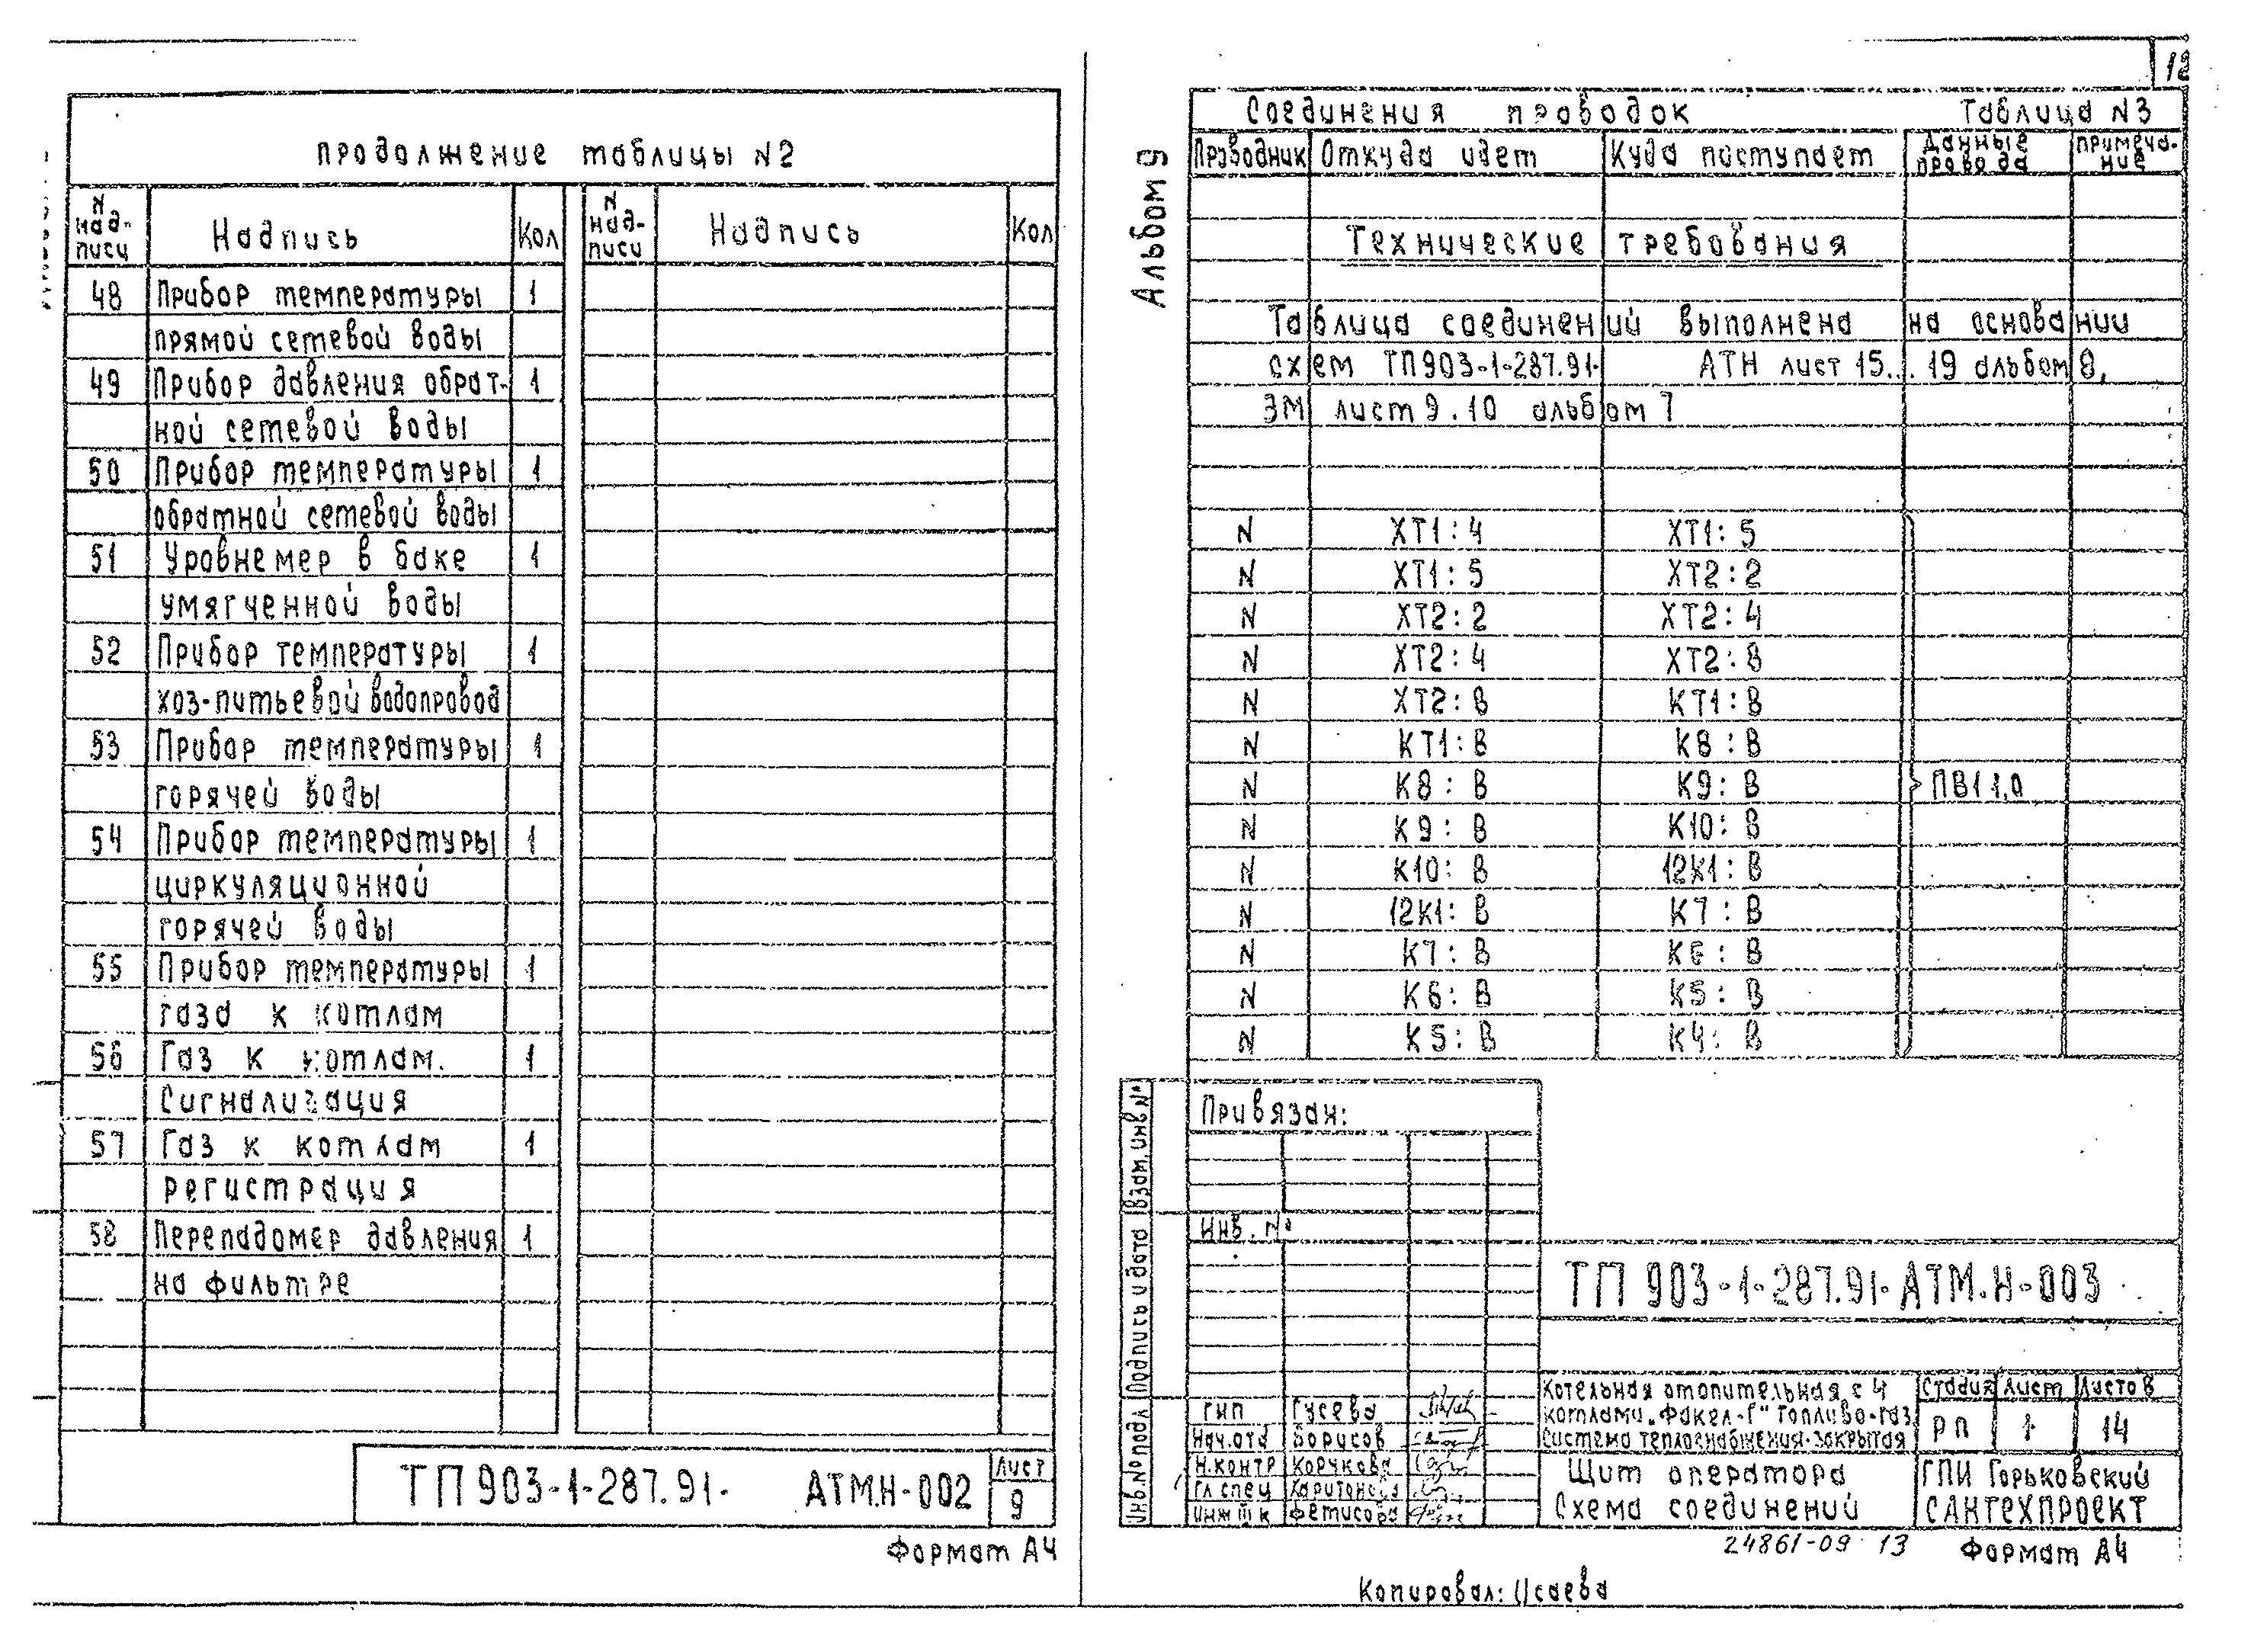 продолжение таблицы N2
N надписи Надпись Кол N надписи Надпись Кол
48 Прибор температуры 1
прямой сетевой воды
49 Прибор давления обрат- 1
ной сетевой воды
50 Прибор температуры 1
обратной сетевой воды
51 Уровнемер в баке 1
умягченной воды
52 Прибор температуры 1
хоз-питьевой водопровод
53 Прибор температуры 1
горячей воды
54 Прибор температуры 1
циркуляционной
горячей воды
55 Прибор температуры 1
газа к котлам
56 Газ к котлам. 1
Сигнализация
57 Газ к котлам 1
регистрация
58 Перепадомер давления 1
на фильтре
ТП 903-1-287.91. АТМ.Н-002
Лист
9
Формат А4
12
Альбом 9
Соединения проводок Таблица N3
Проводник Откуда идет Куда поступает Данные провода Примеча-ние
Технические требования
Таблица соединений выполнена на основании
схем ТП903-1-287.91. АТН лист 15... 19 альбом 8,
ЭМ лист 9.10 альбом 7
N ХТ1:4 ХТ1:5
N ХТ1:5 ХТ2:2
N ХТ2:2 ХТ2:4
N ХТ2:4 ХТ2:8
N ХТ2:В КТ1:В
N КТ1:В К8:В
N К8:В К9:В ПВ1 1,0
N К9:В К10:В
N К10:В 12К1:В
N 12К1:В К7:В
N К7:В К6:В
N К6:В К5:В
N К5:В К4:В
Привязан:
Инв. №
Взам. инв №
Подпись и дата
Инв.№ подл
ТП 903-1-287.91. АТМ.Н-003
ГИП Гусева
Нач.отд Борисов
Н.контр Корчкова
Гл спец Харитонова
Инж III к Фетисова
Котельная отопительная с 4
котлами „Факел-Г" Топливо-газ
Система теплоснабжения-закрытая
Стадия Лист Листов
РП 1 14
Щит оператора
Схема соединений
ГПИ Горьковский
САНТЕХПРОЕКТ
24861-09 13
Формат А4
Копировал: Исаева